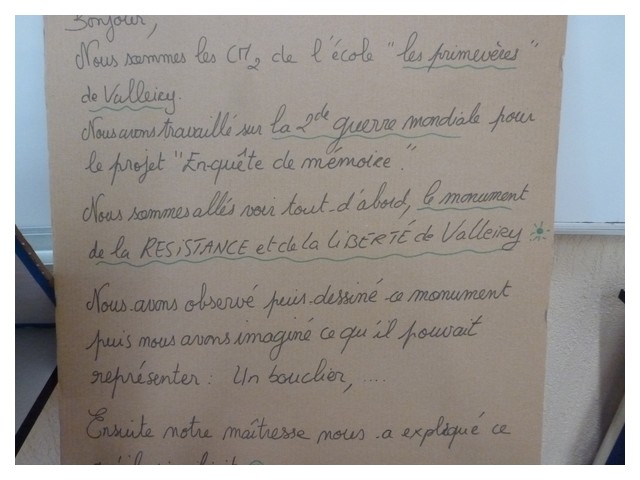 Bonjour,
Nous sommes les CM2 de l'école "les primevères"
de Valleiry.
Nous avons travaillé sur la 2de guerre mondiale pour
le projet "En-quête de mémoire".
Nous sommes allés voir tout-d'abord, le monument
de la RESISTANCE et de la LIBERTÉ de Valleiry
Nous avons observé puis dessiné ce monument
puis nous avons imaginé ce qu'il pouvait
représenter : Un bouclier, ....
Ensuite notre maîtresse nous a expliqué ce